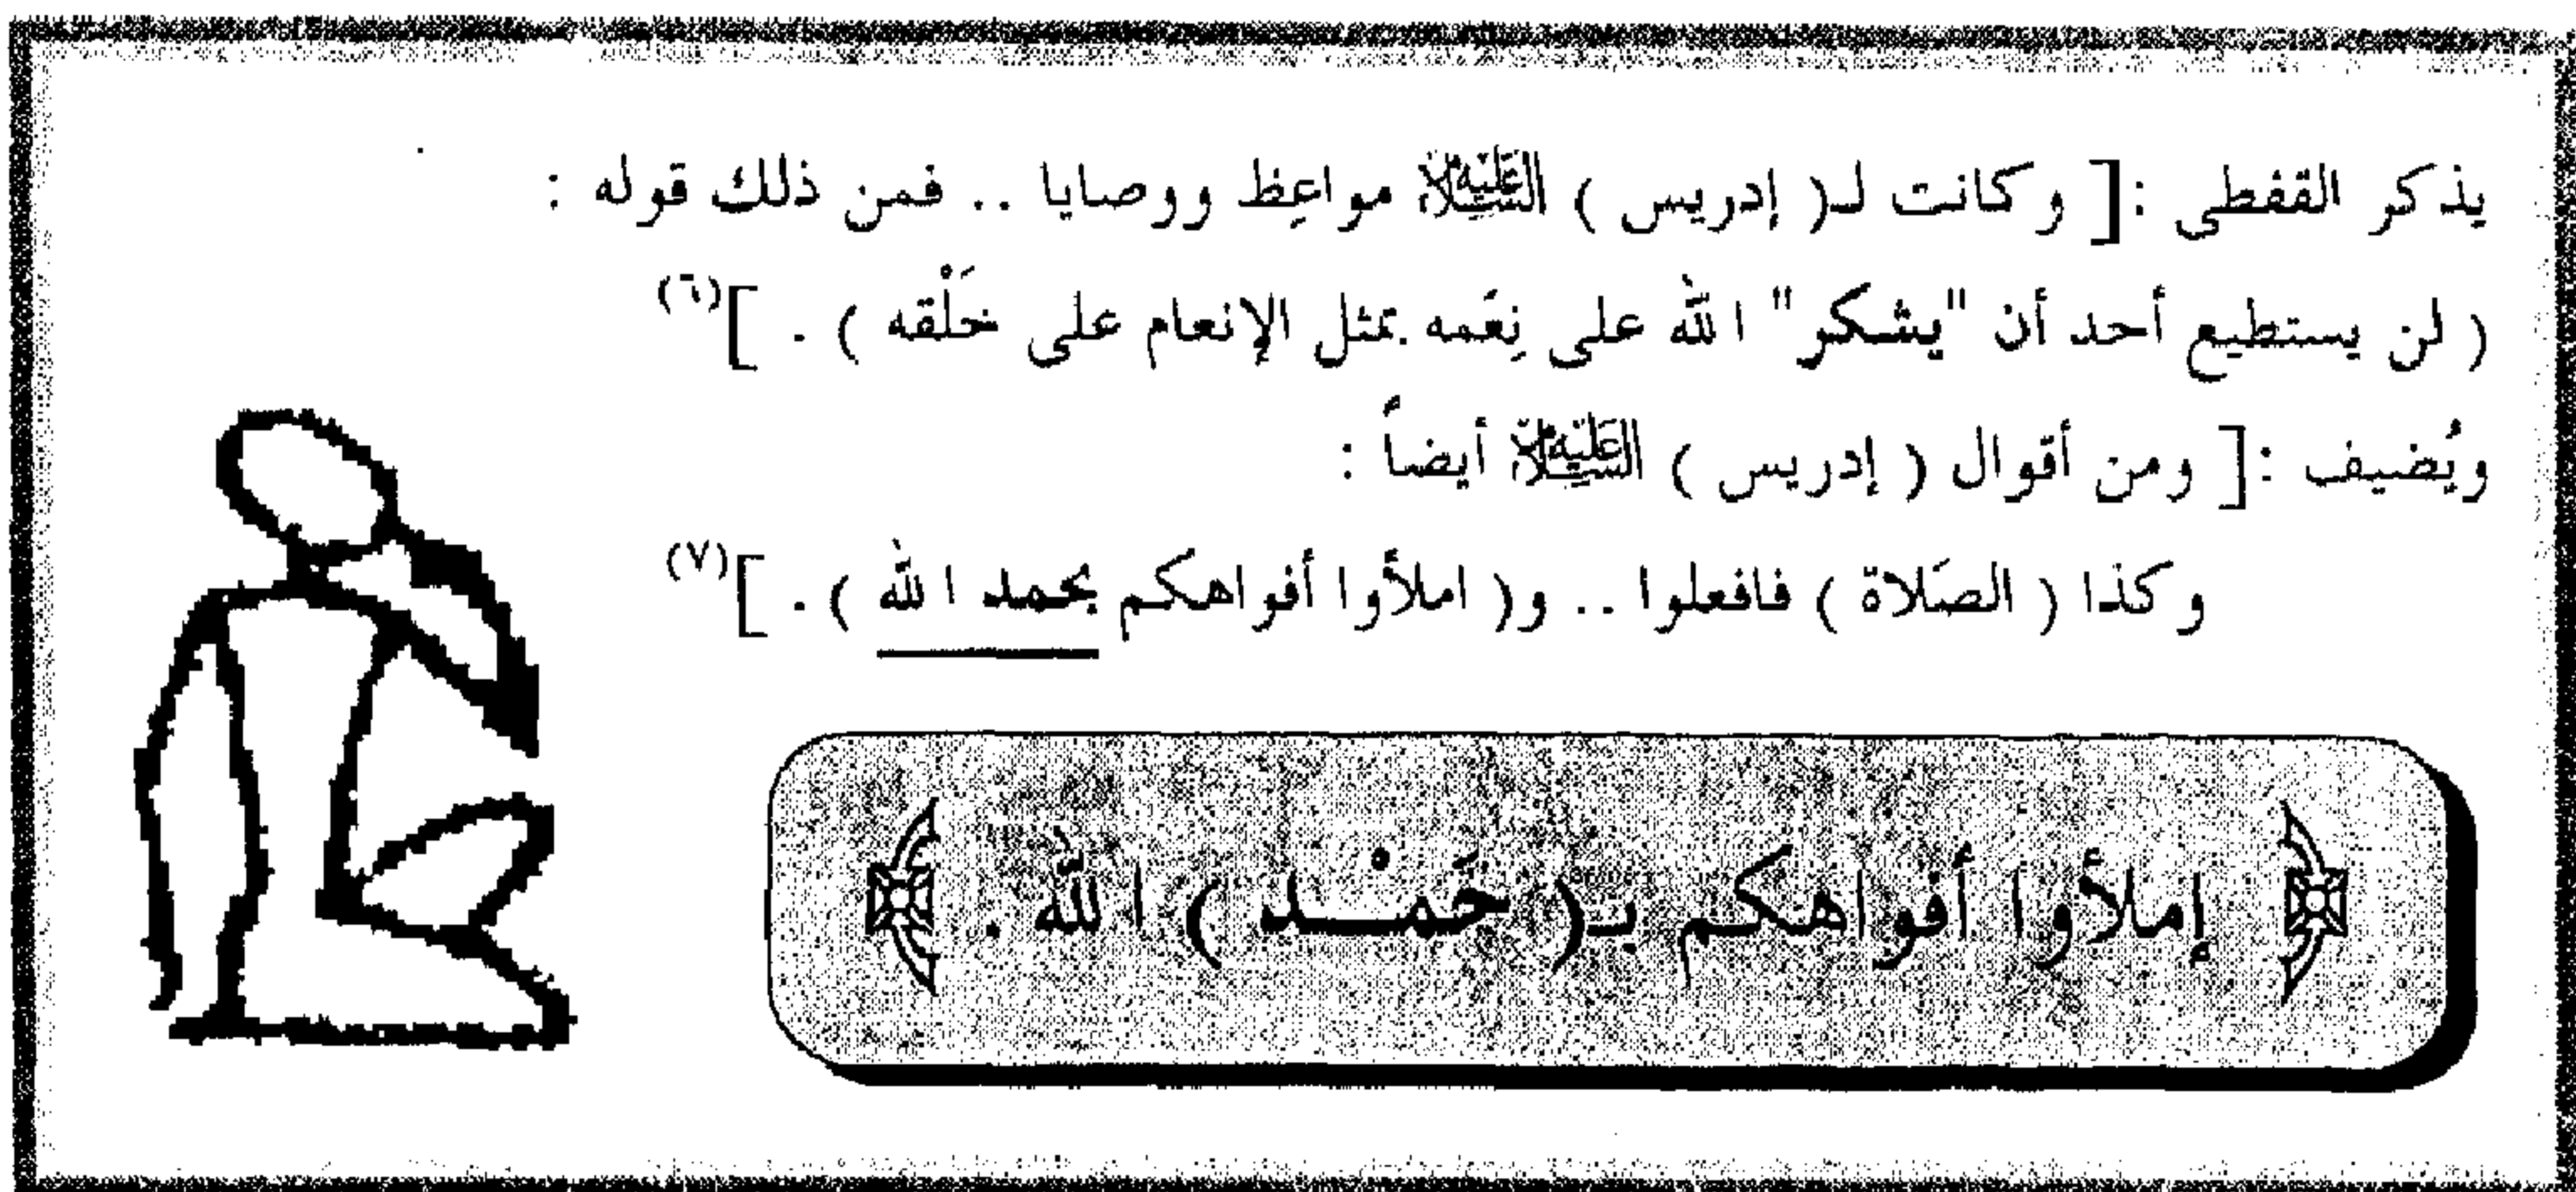 يذكر القفطى :[ وكانت لـ( إدريس ) عليه السلام مواعِظ ووصايا .. فمن ذلك قوله :
( لن يستطيع أحد أن "يشكر" الله على نِعَمه بمثل الإنعام على خَلْقه ) . ](٦)
ويُضيف :[ ومن أقوال ( إدريس ) عليه السلام أيضاً :
وكذا ( الصَلاة ) فافعلوا .. و( املأوا أفواهكم بحمد الله ) . ](٧)
إملأوا أفواهكم بـ( حَمْـد ) الله .